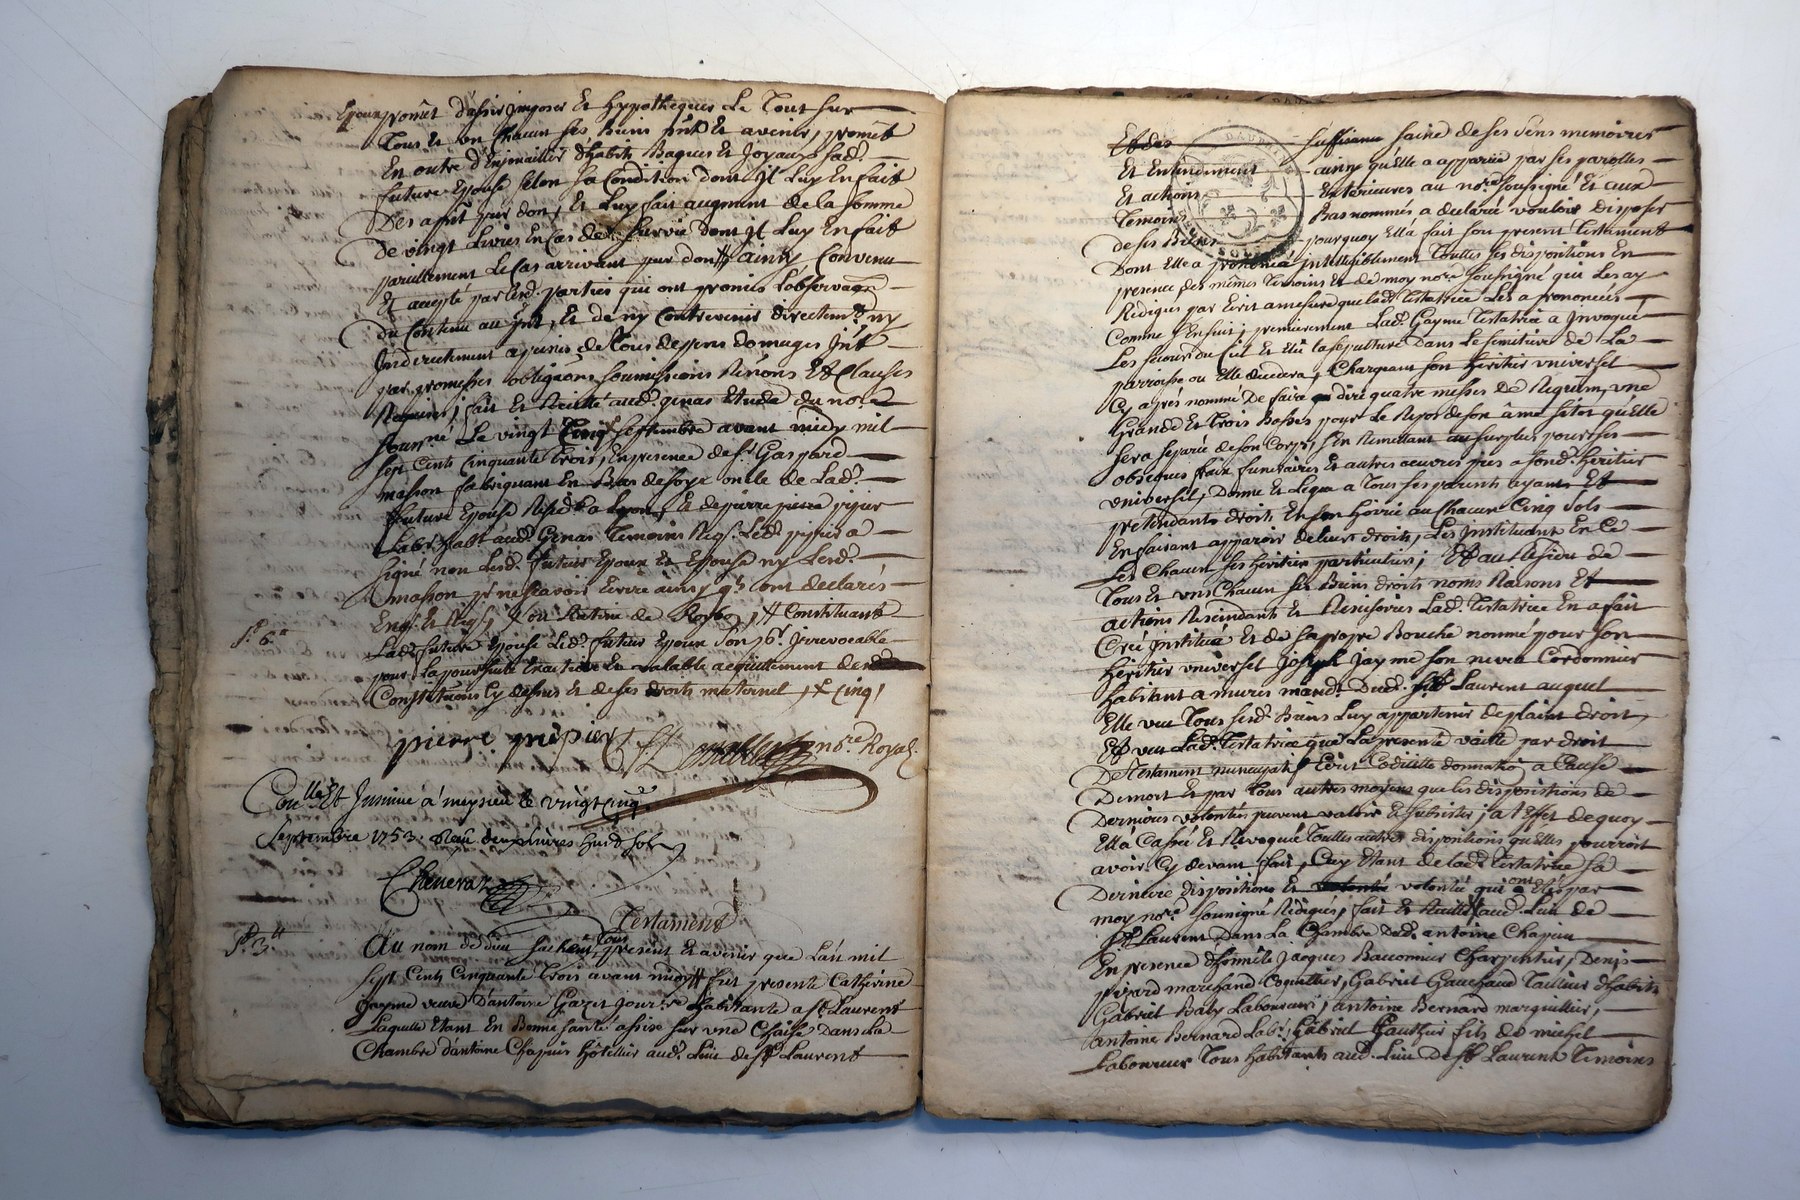 Epoux promet d'assir imposer Et hypothequer Le Tout sur
Tous Et un Chacun ses biens pnts Et avenir, promet
En outre d'Enjouailler d'habits Bagues Et Joyaux sad.
future Epouse selon sa Condition dont Jl Luy En fait
Des aprst pur don, Et Luy fait augment de la somme
De vingt Livres En Cas de survie dont Jl Luy En fait
pareillement Le Cas arrivant pur don ainsy Convenu
Et accepté par lesd. parties qui ont promis L'observaon
du Contenu au pnt, Et de ny Contrevenir directemt. ny
Jndirectement a peines de Tous depens domages Jnt
par promesses obligaons soumissions Renons Et Clauses
Requises; fait Et Recitté aud. genas Etude du nore
Le vingt Cinq septembre avant midy mil
sept Cents Cinquante Trois, En presence de sr. Gaspard
masson fabriquant En Bas de soye oncle de Lad.
future Epouse Residt a Lyon, Et de pierre pipier
Labr habt aud. Genas Temoins Req. Led. pipier a
signé non Lesd. futurs Epoux Et Epouse ny Led.
masson pr ne sçavoir Ecrire ainsy qls. ont declarés
Enq. Et Reqs, Constituant
Lad. future Epouse Led. futur Epoux son pr. Jrrevocable
pour La poursuite Exaction Et valable acquittement desd.
Constitutions Cy dessus Et de ses droits maternel, cinq,
pierre pipier nore Royal
Conllé Et Jnsinué à meysieu le vingt cinq
septembre 1753. Reçu deux livres huit sols
Cheneraz
Testament
Au nom de dieu sachent Tous present Et avenir que L'an mil
sept Cents Cinquante Trois avant midy fut presente Catherine
Jayme veuve D'antoine Gazet jourre habitante a St Laurent
Laquelle Etant En Bonne santé assise sur une Chaise Dans La
Chambre d'antoine Chapuis hôtellier aud. Lieu de St Laurent
suffisance saine de ses sens memoires
Et Entendement ainsy qu'Elle a apparüe par ses parolles
Et actions Exterieures au nore soussigné Et aux
Temoins Bas nommés a declaré vouloir disposer
de ses Biens pourquoy Ella fait son present Testament
Dont Elle a prononcé intelligiblement Touttes ses dispositions En
presence des mêmes Temoins Et de moy nore soussigné qui Les ay
Rediges par Ecrit a mesure que lad. Testatrice Les a prononcés
Comme s'Ensuit; premierement Lad. Jayme Testatrice a Jnvoqué
Les secours du Ciel Et Elû sa sepulture Dans Le semitiere de La
parroisse ou Elle decedera, Chargeant son Heritier vniversel
Cy après nommé De faire dire quatre messes de Requiem, une
Grande Et Trois Basses pour Le Repos de son âme sitot qu'Elle
sera separée de son Corps, s'En Remettant au surplus pour ses
obseques fraix funeraires Et autres oeuvres pies a sond. Heritier
vniversel, Donne Et Legue a Tous ses parents ayants Et
pretendants droits En son hoirie au Chacun Cinq sols
En faisant apparoir de leurs droits, Les Jnstituant En Ce
Les Chacun ses Heritiers particuliers; Et au Residu de
Tous Et uns Chacun ses Biens droits noms Raisons Et
actions Rescindants Et Rescisoires Lad. Testatrice En a fait
Créé Jnstitué Et de sa propre Bouche nommé pour son
Heritier vniversel Joseph Jayme son neveu Cordonnier
Habitant a mures mandt. Dud. St Laurent auquel
Elle veut Tous sesd. Biens Luy appartenir de plaint droit,
Et veut Lad. Testatrice que La presente vaille par droit
De Testament nuncupatif Ecrit Codicille donnation a Cause
De mort Et par Tous autres moyens que les dispositions de
Dernieres volontés peuvent valoir Et subsister; a l'Effet de quoy
Ella Cassée Et Revoquée Touttes autres dispositions qu'Elles pourroit
avoir Cy devant fait, Cecy Etant de lad. Testatrice sa
Derniere disposition Et volonté qui ont Etés par
moy nore soussigné Rediges, fait Et Recitté aud. Lieu de
St Laurent Dans La Chambre Dud. antoine Chapuis
En presence d'honnête Jacques Baconnier Charpentier, Denis
pivard marchand Coquettier, Gabriel Gauchand Tailleur d'habits
Gabriel Baly Laboureur; antoine Bernard marguillier,
antoine Bernard Labr. Gabriel Gauthier fils de michel
Laboureur Tous habitants aud. Lieu De St Laurent Temoins